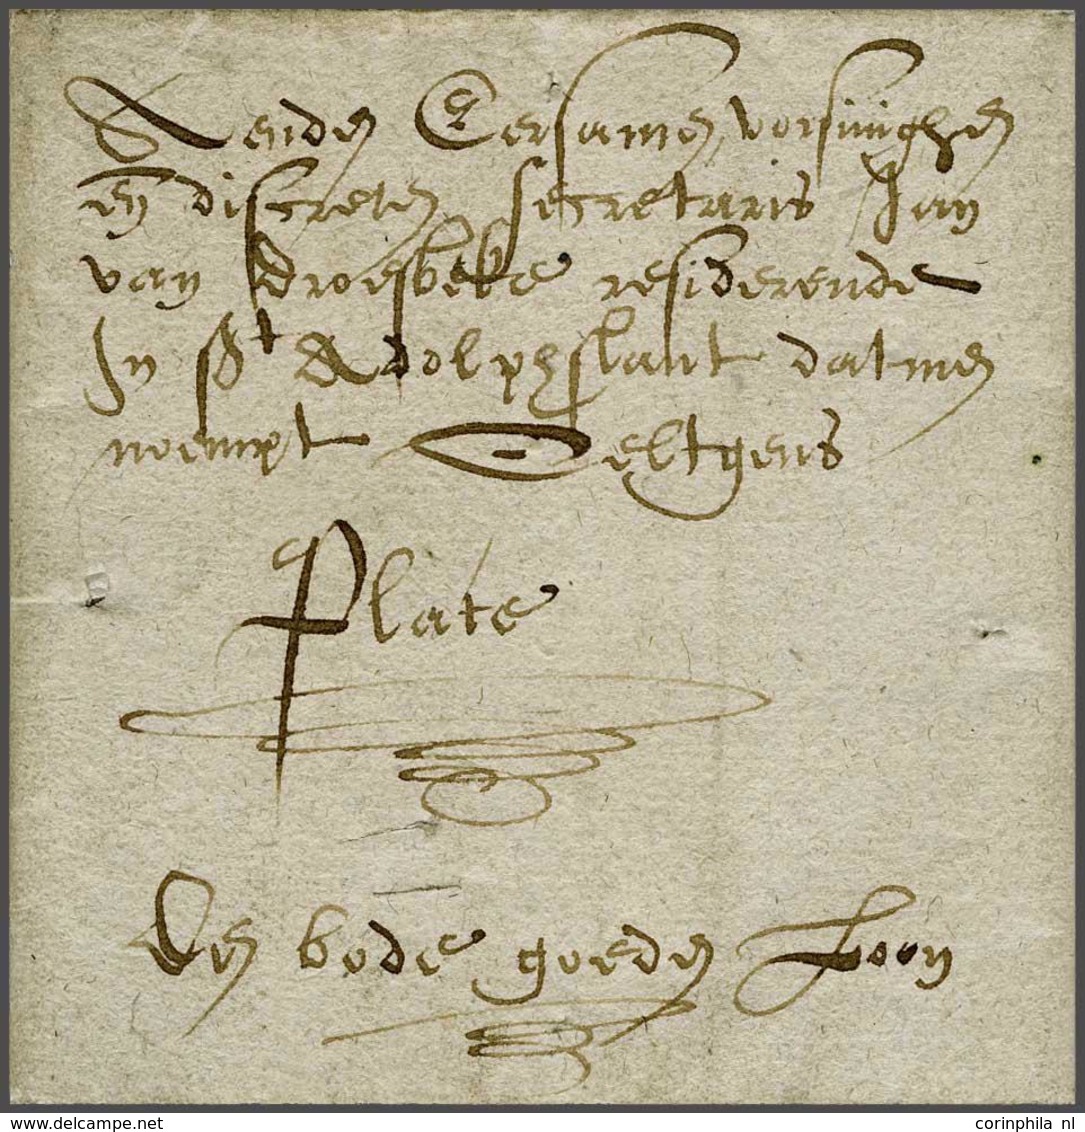 Aenden Eersamen vorsinighen
en discreten secretaris Jan
van droesbeke residerende
In st Adolphslant datmen
noempt Oeltgens
Plate
Den bode goeden Loon
corinphila nl